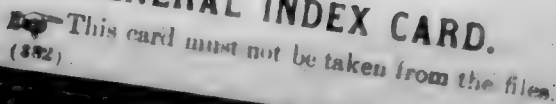 GENERAL INDEX CARD.
☞ This card must not be taken from the files.
(332)